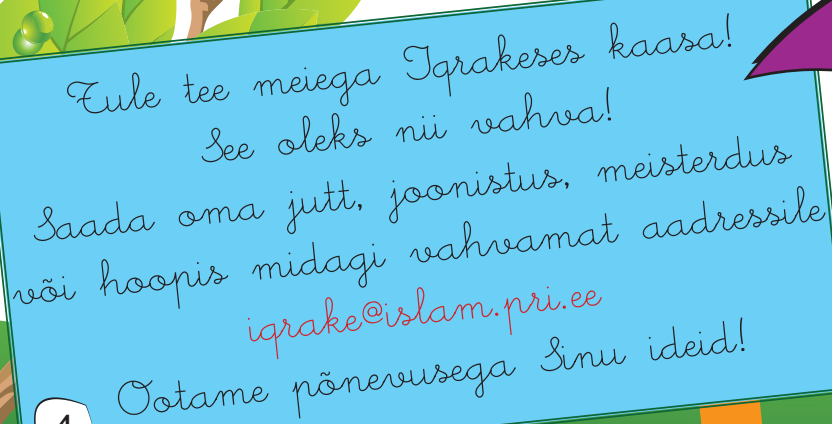 Tule tee meiega Iqrakeses kaasa!
See oleks nii vahva!
Saada oma jutt, joonistus, meisterdus
või hoopis midagi vahvamat aadressile
iqrake@islam.pri.ee
Ootame põnevusega Sinu ideid!